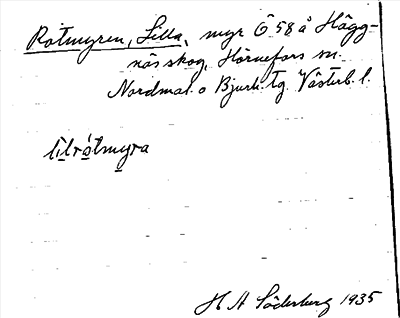 Rotmyren, Lilla, myr Ö 58 å Hägg-
näs skog, Hörnefors sn.
Nordmal. o Bjurh. tg. Västerb. l.
lilrótmyra
H A Söderberg 1935